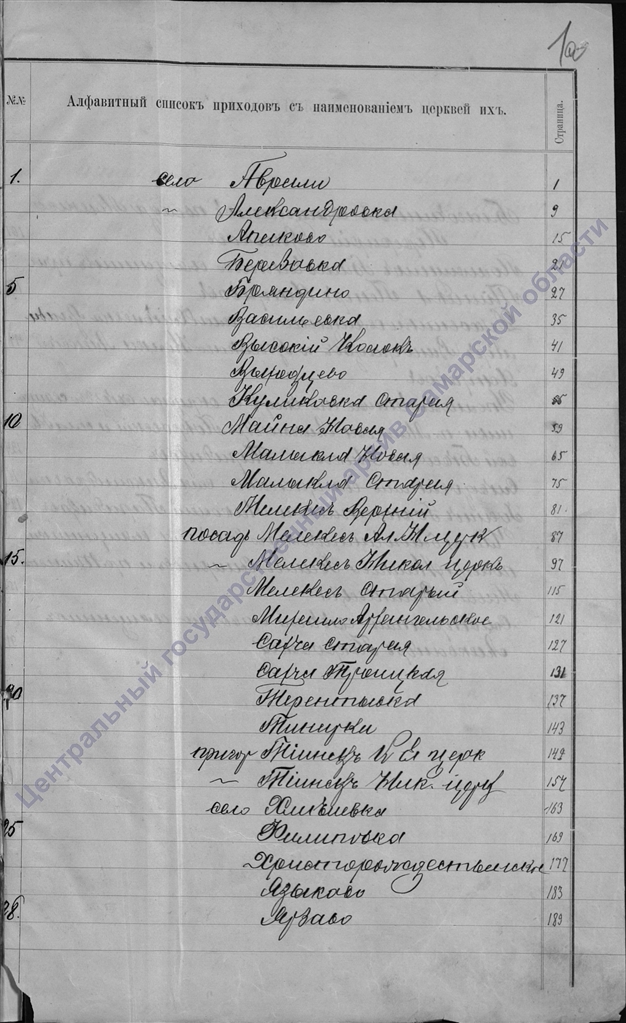 №№ Алфавитный списокъ приходовъ съ наименованіемъ церквей ихъ. Страница.
1. село Аврали 1
" Александровка 9
Апаково 15
Березовка 21
5 Бряндино 27
Васильевка 35
Высокій Колокъ 41
49
Куликовка Старая
10 Майна Новая 59
Малыкла Новая 65
Малыкла Старая 75
Мелекесъ Верхній 81
посадъ Мелекесъ Ал. 87
15. " Мелекесъ Никол церквь 97
Мелекесъ Старый 115
Архангельское 121
Сахча Старая 127
Сахча Троицкая 131
20 Терентьевка 137
143
пригор Тіинскъ церк 149
" Тіинскъ Ник. церк 157
село Хмѣлевка 163
25 Филиповка 169
Христорождественское 177
Языково 183
28. 189
Центральный государственный архив Самарской области